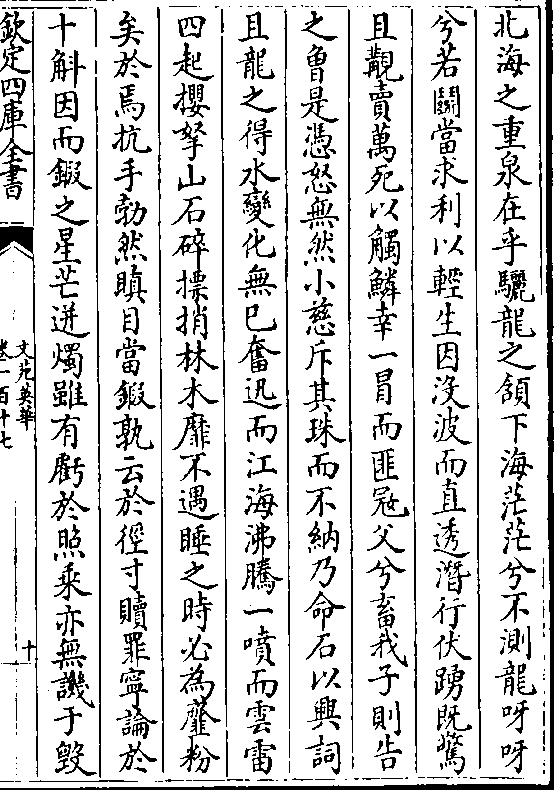 北海之重泉在乎驪龍之頷下海茫茫兮不測龍呀呀
兮若鬭當求利以輕生因沒波而直透潛行伏踴既驚
且覯賣萬死以觸鱗幸一冒而匪寇父兮畜我子則告
之曾是憑怒無然小慈斥其珠而不納乃命石以興詞
且龍之得水變化無已奮迅而江海沸騰一噴而雲雷
四起攖拏山石碎摽捎林木靡不遇睡之時必為虀粉
矣於焉抗手勃然瞋目當鍜孰云於徑寸贖罪寧論於
十斛因而鍜之星芒迸燭雖有虧於照乘亦無譏于毀
欽定四庫全書
文苑英華
卷一百十七
十